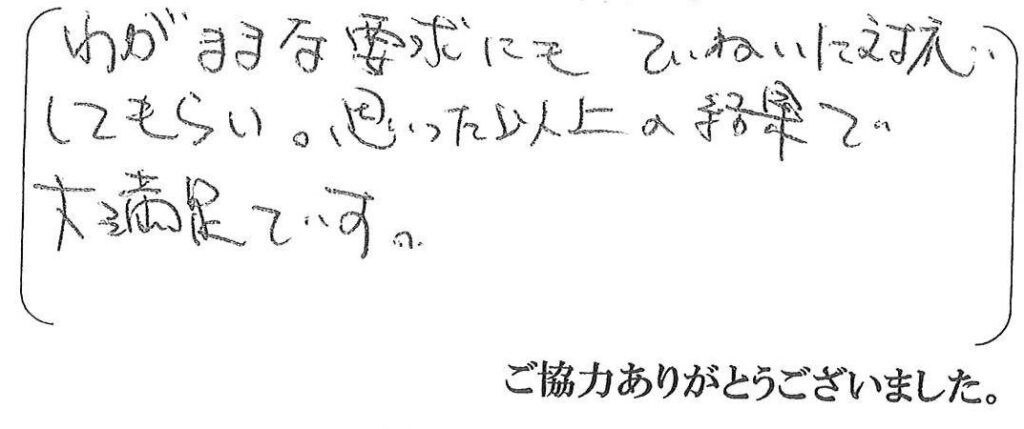 わがままな要求にも ていねいに対応
してもらい。思った以上の結果で
大満足です。
ご協力ありがとうございました。